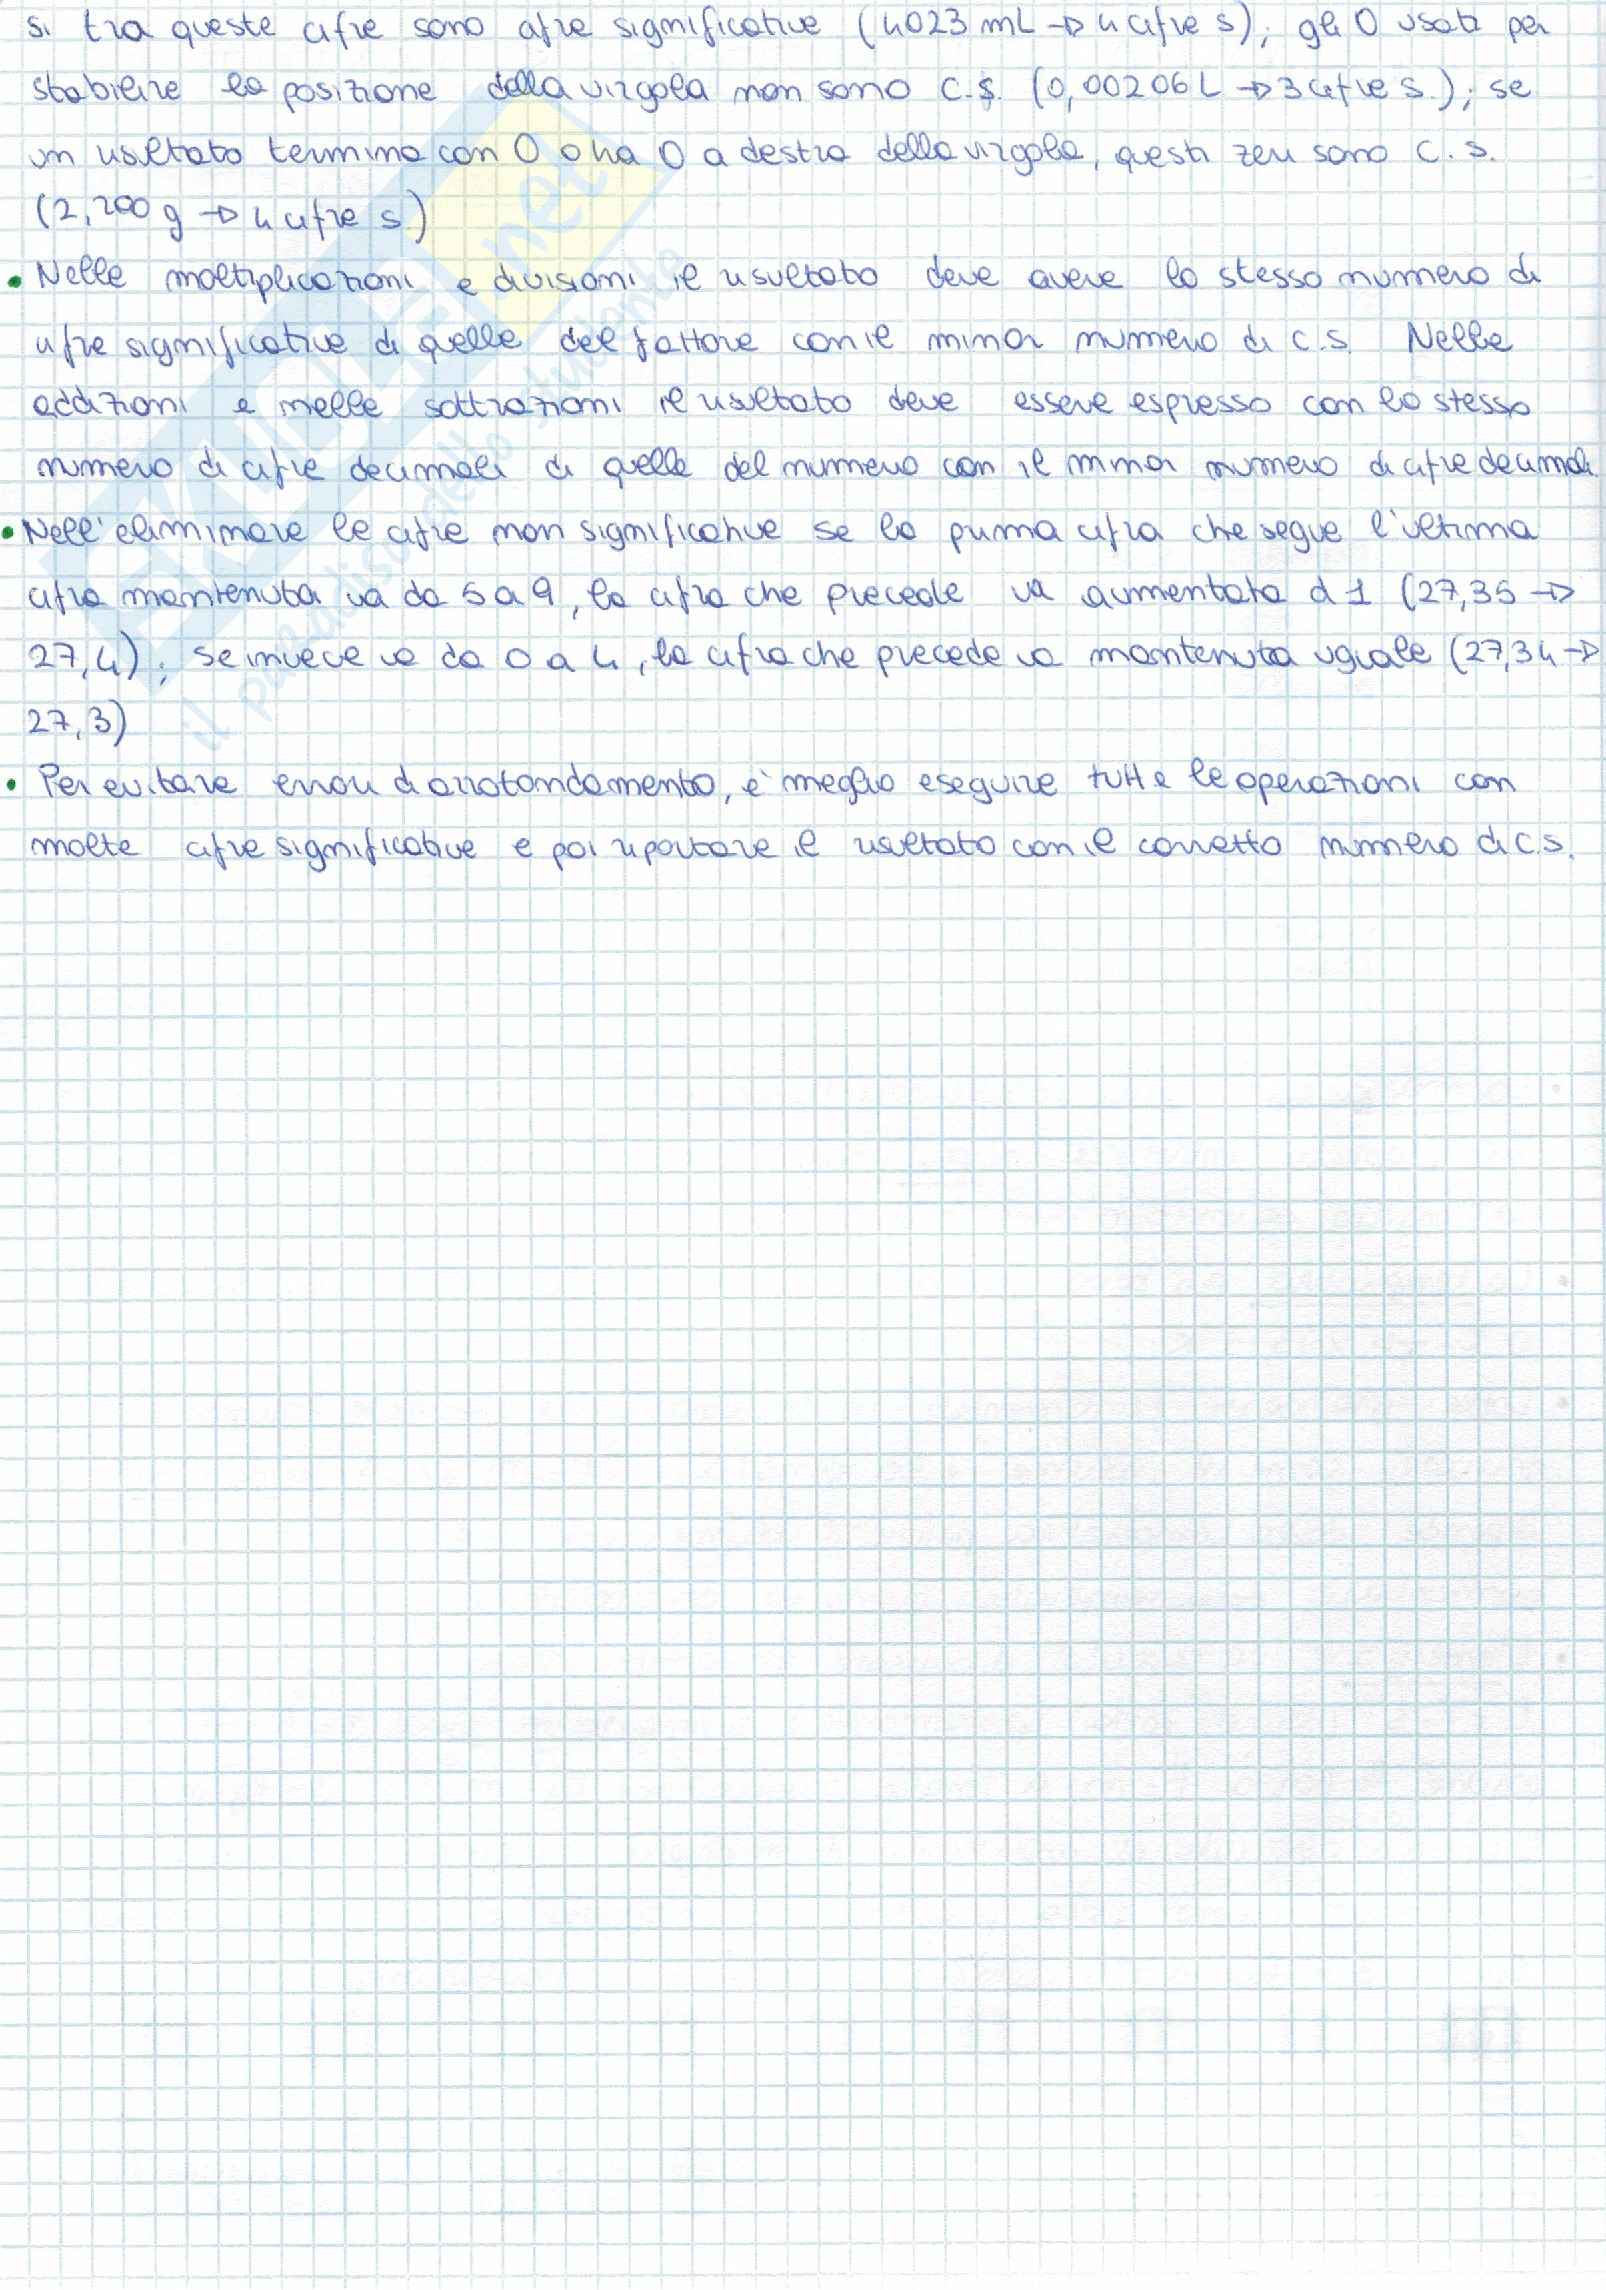 si tra queste cifre sono cifre significative (4023 mL → 4 cifre s); gli 0 usati per
stabilire la posizione della virgola non sono c.s. (0,00206 L → 3 cifre s.); se
un risultato termina con 0 o ha 0 a destra della virgola, questi zeri sono c.s.
(2,200 g → 4 cifre s.)
• Nelle moltiplicazioni e divisioni il risultato deve avere lo stesso numero di
cifre significative di quelle del fattore con il minor numero di c.s. Nelle
addizioni e nelle sottrazioni il risultato deve essere espresso con lo stesso
numero di cifre decimali di quelle del numero con il minor numero di cifre decimali.
• Nell'eliminare le cifre non significative se la prima cifra che segue l'ultima
cifra mantenuta va da 5 a 9, la cifra che precede va aumentata di 1 (27,35 →
27,4); se invece va da 0 a 4, la cifra che precede va mantenuta uguale (27,34 →
27,3)
• Per evitare errori di arrotondamento, è meglio eseguire tutte le operazioni con
molte cifre significative e poi riportare il risultato con il corretto numero di c.s.
SKUOLA.net
il paradiso dello studente